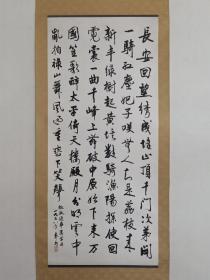 長安回望绣成堆山頂千門次第開
一騎红塵妃子咲無人知是荔枝来
新丰绿樹起黄埃數騎渔陽探使回
霓裳一曲千峰上舞破中原始下来萬
國笙歌醉太平倚天樓殿月分明雲中
亂拍禄山舞風過重巒下笑聲